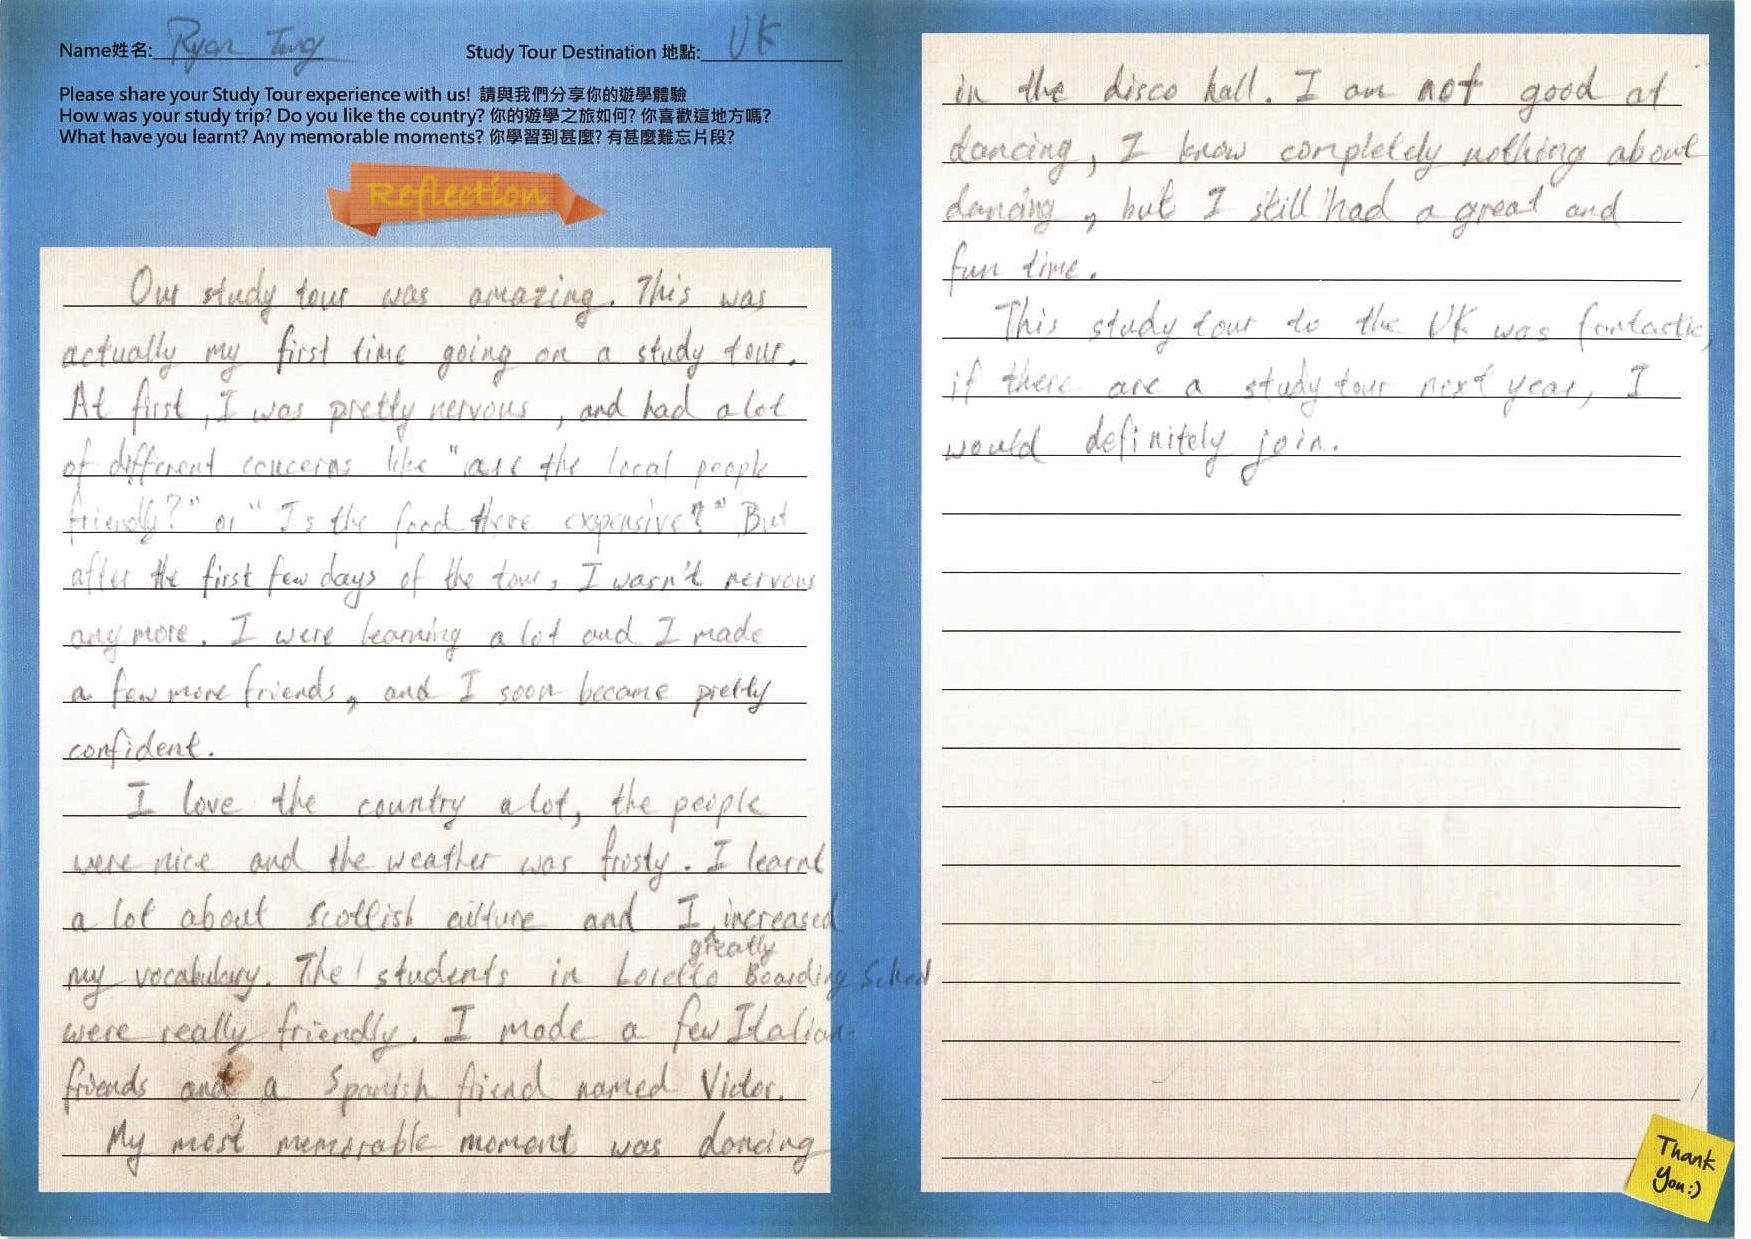 Name姓名: Ryan Tung Study Tour Destination 地點: UK
Please share your Study Tour experience with us! 請與我們分享你的遊學體驗
How was your study trip? Do you like the country? 你的遊學之旅如何? 你喜歡這地方嗎?
What have you learnt? Any memorable moments? 你學習到甚麼? 有甚麼難忘片段?
Reflection
Our study tour was amazing. This was
actually my first time going on a study tour.
At first, I was pretty nervous, and had a lot
of different concerns like "are the local people
friendly?" or "Is the food there expensive?" But
after the first few days of the tour, I wasn't nervous
anymore. I were learning a lot and I made
a few more friends, and I soon became pretty
confident.
I love the country a lot, the people
were nice and the weather was frosty. I learnt
a lot about Scottish culture and I increased
greatly
my vocabulary. The students in Loretto Boarding School
were really friendly. I made a few Italian
friends and a Spanish friend named Victor.
My most memorable moment was dancing
in the disco hall. I am not good at
dancing, I know completely nothing about
dancing, but I still had a great and
fun time.
This study tour to the UK was fantastic,
if there are a study tour next year, I
would definitely join.
Thank
You:)